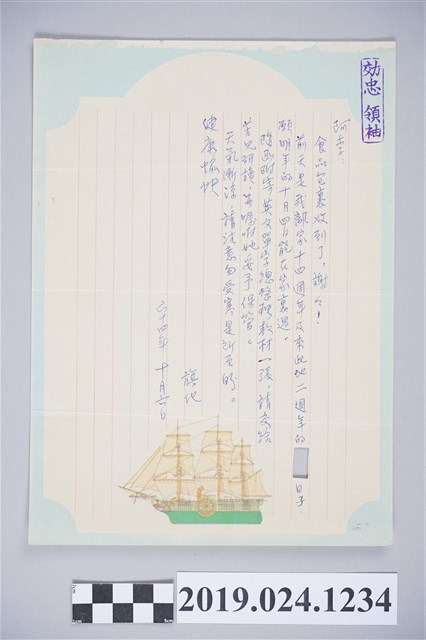 効忠領袖
阿李：
食品包裹收到了，謝々！
前天是我離家十四週年及來此地二週年的 日子。
願明年的十月四日能在家裏過。
隨函附寄英文單字總整理教材一張，請交給
兒研讀，並囑咐她妥予保管。
天氣漸涼，請注意勿受寒是所至盼。
健康愉快
旗化
六十四年十月六日
2019.024.1234